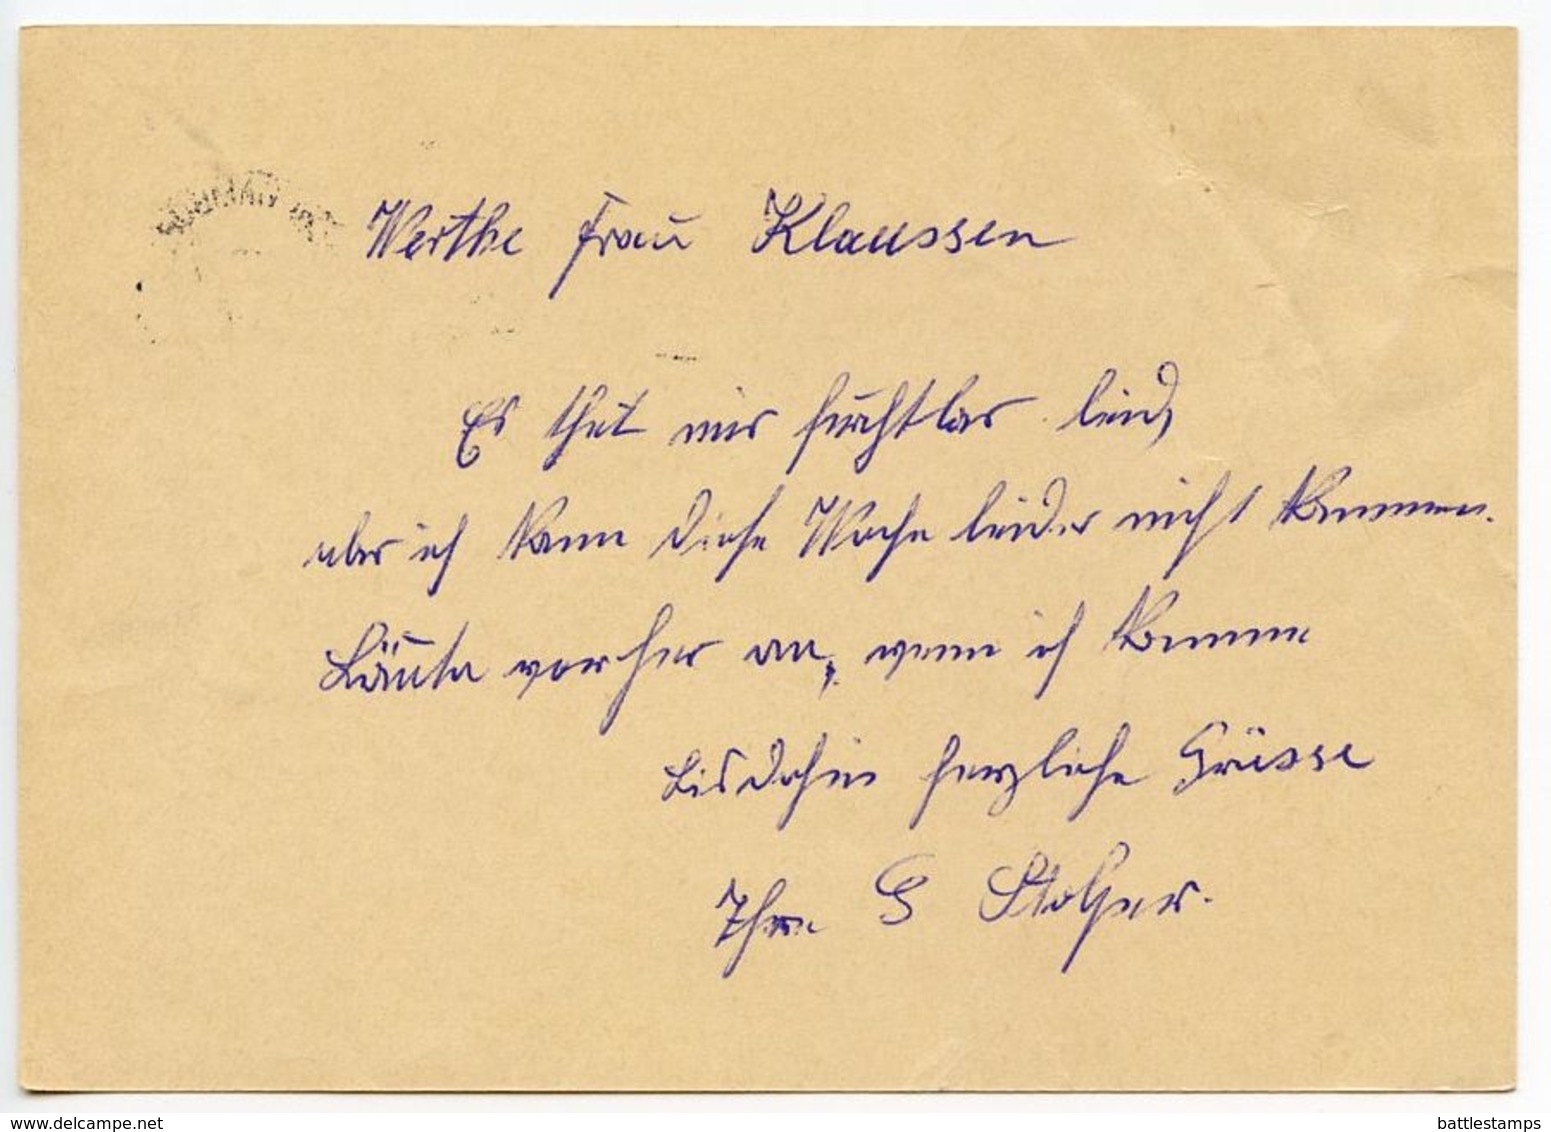 Werthe Frau Klaussen
Es thut mir furchtbar leid,
aber ich kann diese Woche leider nicht kommen.
Läute vorher an, wenn ich komme
bis dahin herzliche Grüsse
Ihre G
delcampe.net
battlestamps